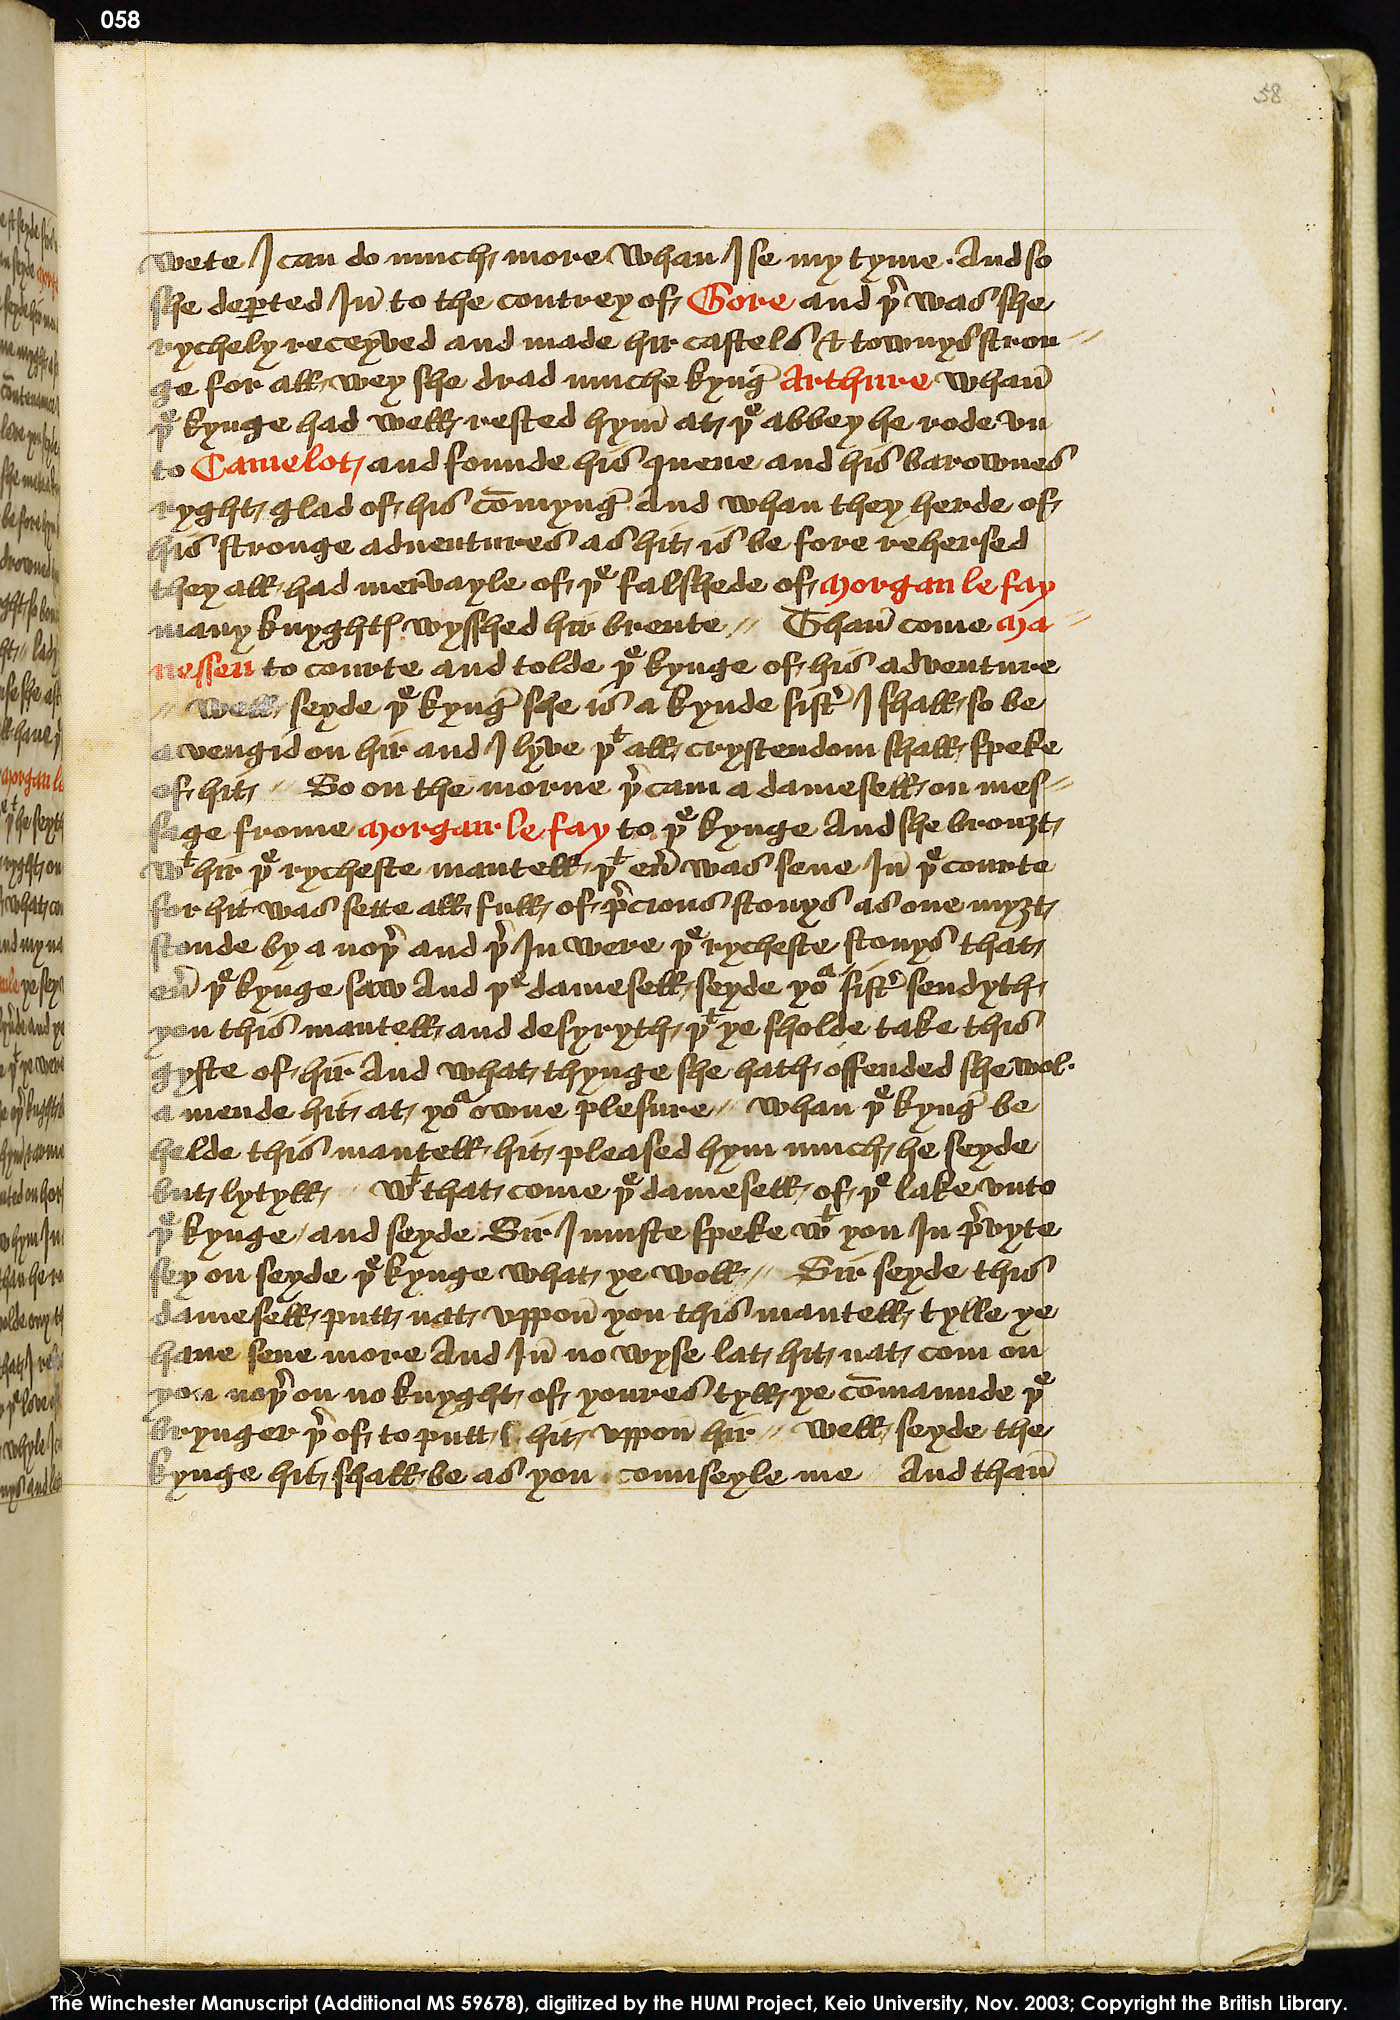 058
58
wete I can do much more whan I se my tyme · And so
she deꝑted In̄ to the contrey of Gore and þʳ was she
rychely receyved and made hir castels & townys stron〃
ge for all wey she drad muche kyng̃ Arthure whan̄
þᵉ kynge had well rested hym̄ at þᵉ abbey he rode vn
to Camelot and founde his quene and his barownes
ryght glad of his cōmyng̃ And whan they herde of
his stronge adventures as hit is be fore rehersed
they all had mervayle of þᵉ falshede of Morgan le fay
many knyghtꝭ wysshed hir brente 〃 Than̄ come Ma〃
nessen to courte and tolde þᵉ kynge of his adventure
〃 Well seyde þᵉ kyng̃ she is a kynde sistʳ I shall so be
a vengid on hir and I lyve þᵗ all crystendom shall speke
of hit 〃 So on the morne þʳ cam a damesell on mes〃
sage frome Morgan le fay to þᵉ kynge And she brouȝt
wᵗ hir þᵉ rycheste mantell þᵗ eũ was sene In̄ þᵉ courte
for hit was sette all full of pʳcious stonys as one myȝt
stonde by a noþʳ and þʳ In were þᵉ rycheste stonys that
eũ þᵉ kynge saw And þᵉ damesell seyde yoᵃ sistʳ sendyth
you this mantell and desyryth þᵗ ye sholde take this
gyfte of hir And what thynge she hath offended she wol
a mende hit at yoᵃ owne plesure 〃 Whan þᵉ kyng̃ be
helde this mantell hit pleased hym much he seyde
but lytyll 〃 wᵗ that come þᵉ damesell of þᵉ lake vnto
þᵉ kynge and seyde Sir I muste speke wᵗ you In pʳvyte
sey on seyde þᵉ kynge what ye woll 〃 Sir seyde this
damesell putt nat vppon̄ you this mantell tylle ye
haue sene more And In̄ no wyse lat hit nat com on
you noþʳ on no knyght of youres tyll ye cōmaunde þᵉ
brynger þʳ of to putt hit vppon̄ hir 〃 Well seyde the
kynge hit shall be as you counseyle me And than̄
The Winchester Manuscript (Additional MS 59678), digitized by the HUMI Project, Keio University, Nov. 2003; Copyright the British Library.